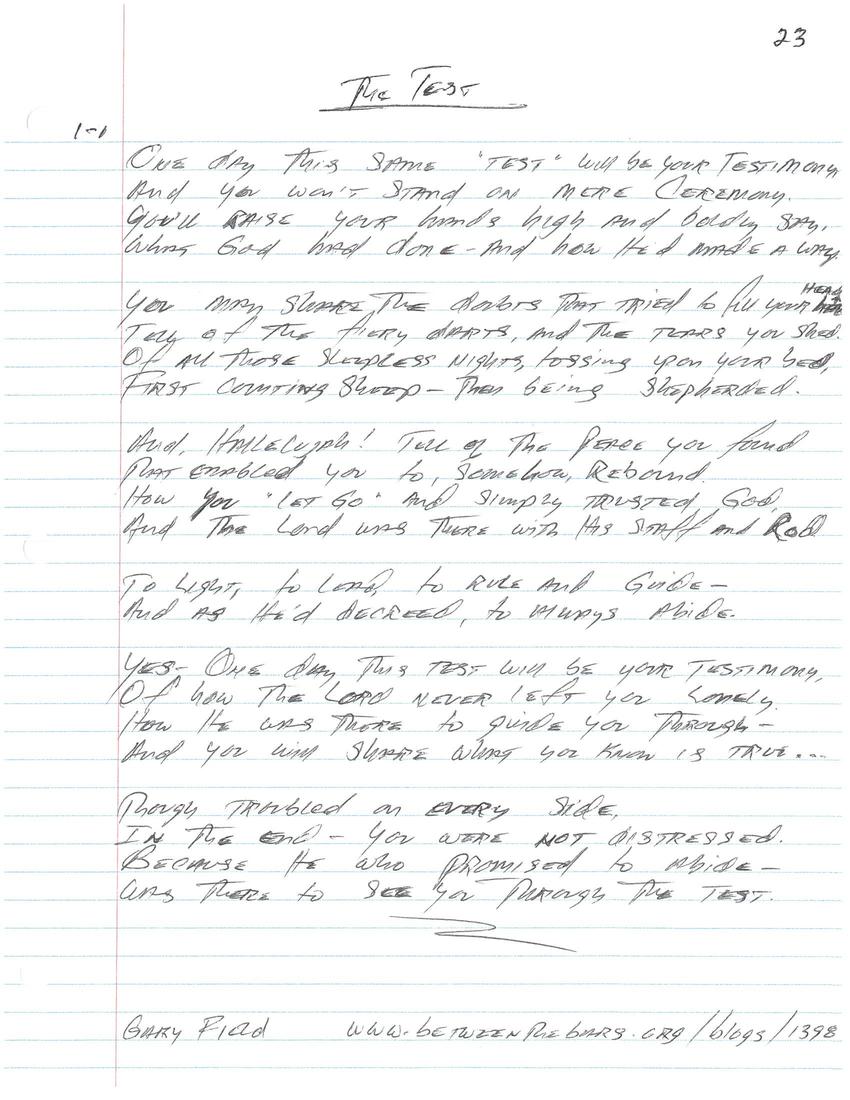 23
The Test
1-1
One day this same "test" will be your testimony,
And you won't stand on mere ceremony.
You'll raise your hands high and boldly say,
What God had done - and how He'd made a way.
You may share the doubts that tried to fill your head
Tell of the fiery darts, and the tears you shed.
Of all those sleepless nights, tossing upon your bed,
First counting sheep - then being shepherded.
And, Hallelujah! Tell of the peace you found
That enabled you to, somehow, rebound.
How you "let go" and simply trusted God,
And the Lord was there with His staff and rod
To light, to lead, to rule and guide -
And as He'd decreed, to always abide.
Yes - One day this test will be your testimony,
Of how the Lord never left you lonely.
How He was there to guide you through -
And you will share what you know is true....
Though troubled on every side,
In the end - you were not distressed.
Because He who promised to abide -
Was there to see you through the test.
Gary Field www.betweenthebars.org/blogs/1398